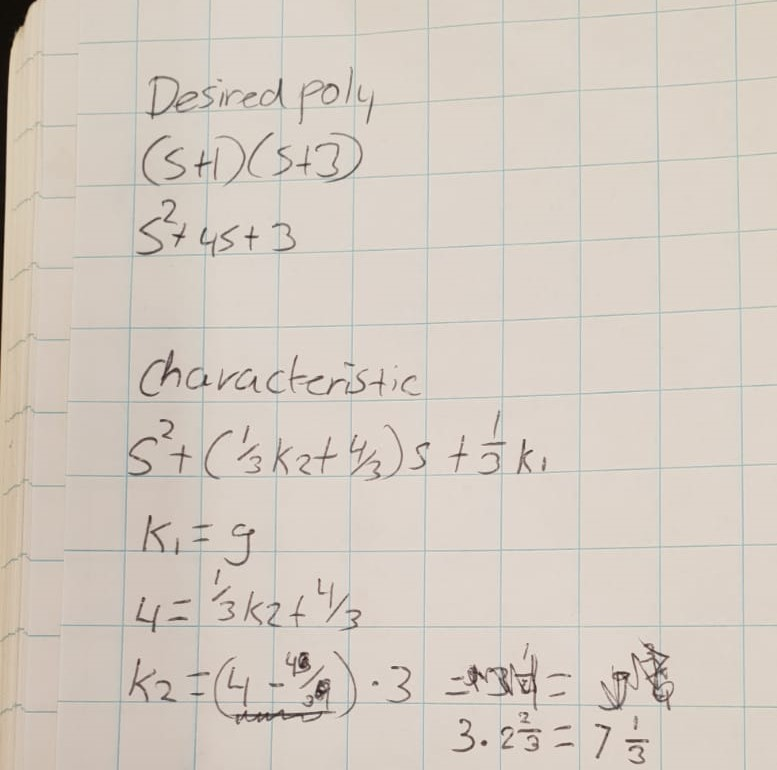 Desired poly
(s+1)(s+3)
s²+4s+3
Characteristic
s²+(1/3k2+4/3)s+1/3 k₁
k₁=9
4=1/3k2+4/3
k2=(4-4/3)·3 = =
3.2 2/3=7 1/3